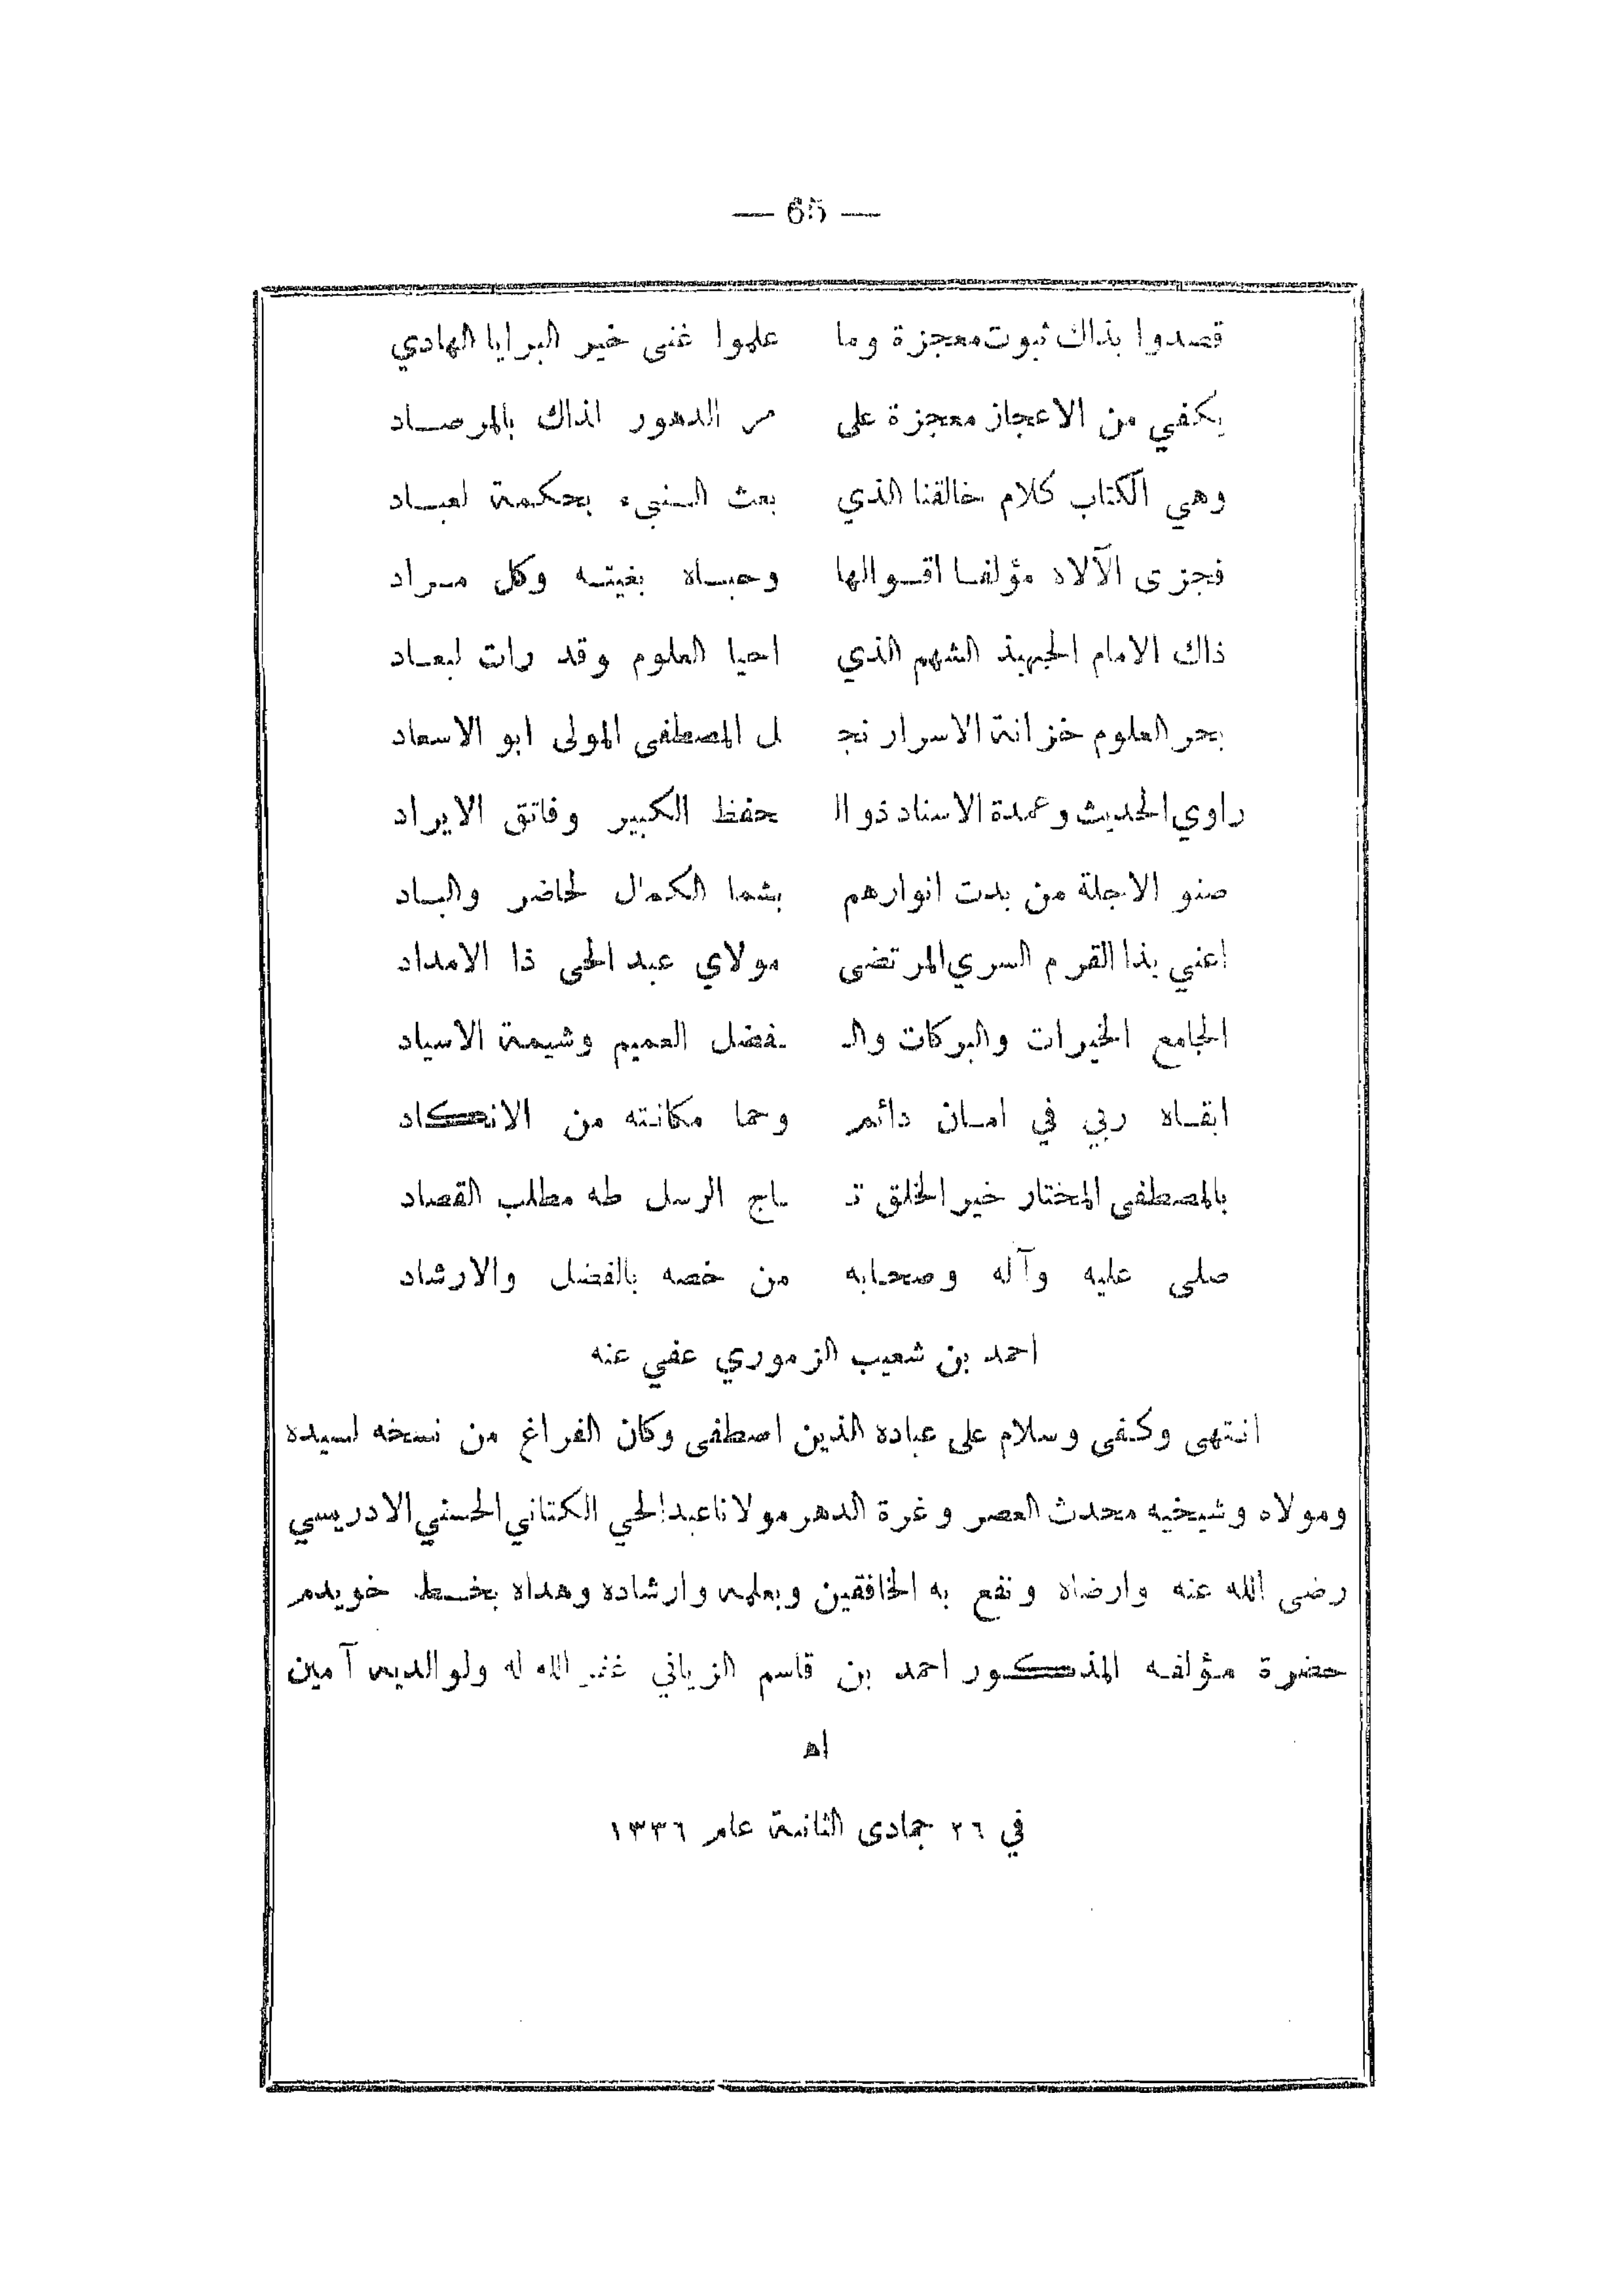 — 65 —
قصدوا بذاك ثبوت معجزة وما علموا غنى خير البرايا الهادي
يكفي من الاعجاز معجزة على مر الدهور لذاك بالمرصاد
وهي الكتاب كلام خالقنا الذي بعث النبيء بحكمة لعباد
فجزى الآلاه مؤلفا اقوالها وحباه بغيته وكل مراد
ذاك الامام الجهبذ الشهم الذي احيا العلوم وقد رات لبعاد
بحر العلوم خزانة الاسرار نجـ ـل المصطفى المولى ابو الاسعاد
راوي الحديث وعمدة الاسناد ذو الـ حفظ الكبير وفاتق الايراد
صنو الاجلة من بدت انوارهم بشما الكمال لحاضر والباد
اعني بذا القرم السري المرتضى مولاي عبد الحي ذا الامداد
الجامع الخيرات والبركات والـ ـفضل العميم وشيمة الاسياد
ابقاه ربي في امان دائم وحما مكانته من الانكاد
بالمصطفى المختار خير الخلق تـ ـاج الرسل طه مطلب القصاد
صلى عليه وآله وصحابه من خصه بالفضل والارشاد
احمد بن شعيب الزموري عفي عنه
انتهى وكفى وسلام على عباده الذين اصطفى وكان الفراغ من نسخه لسيده
ومولاه وشيخيه محدث العصر وغرة الدهر مولانا عبد الحي الكتاني الحسني الادريسي
رضى الله عنه وارضاه ونفع به الخافقين وبعلمه وارشاده وهداه بخط خويدم
حضرة مؤلفه المذكور احمد بن قاسم الزياني غفر الله له ولوالديه آمين
اه
في ٢٦ جمادى الثانية عام ١٣٣٦